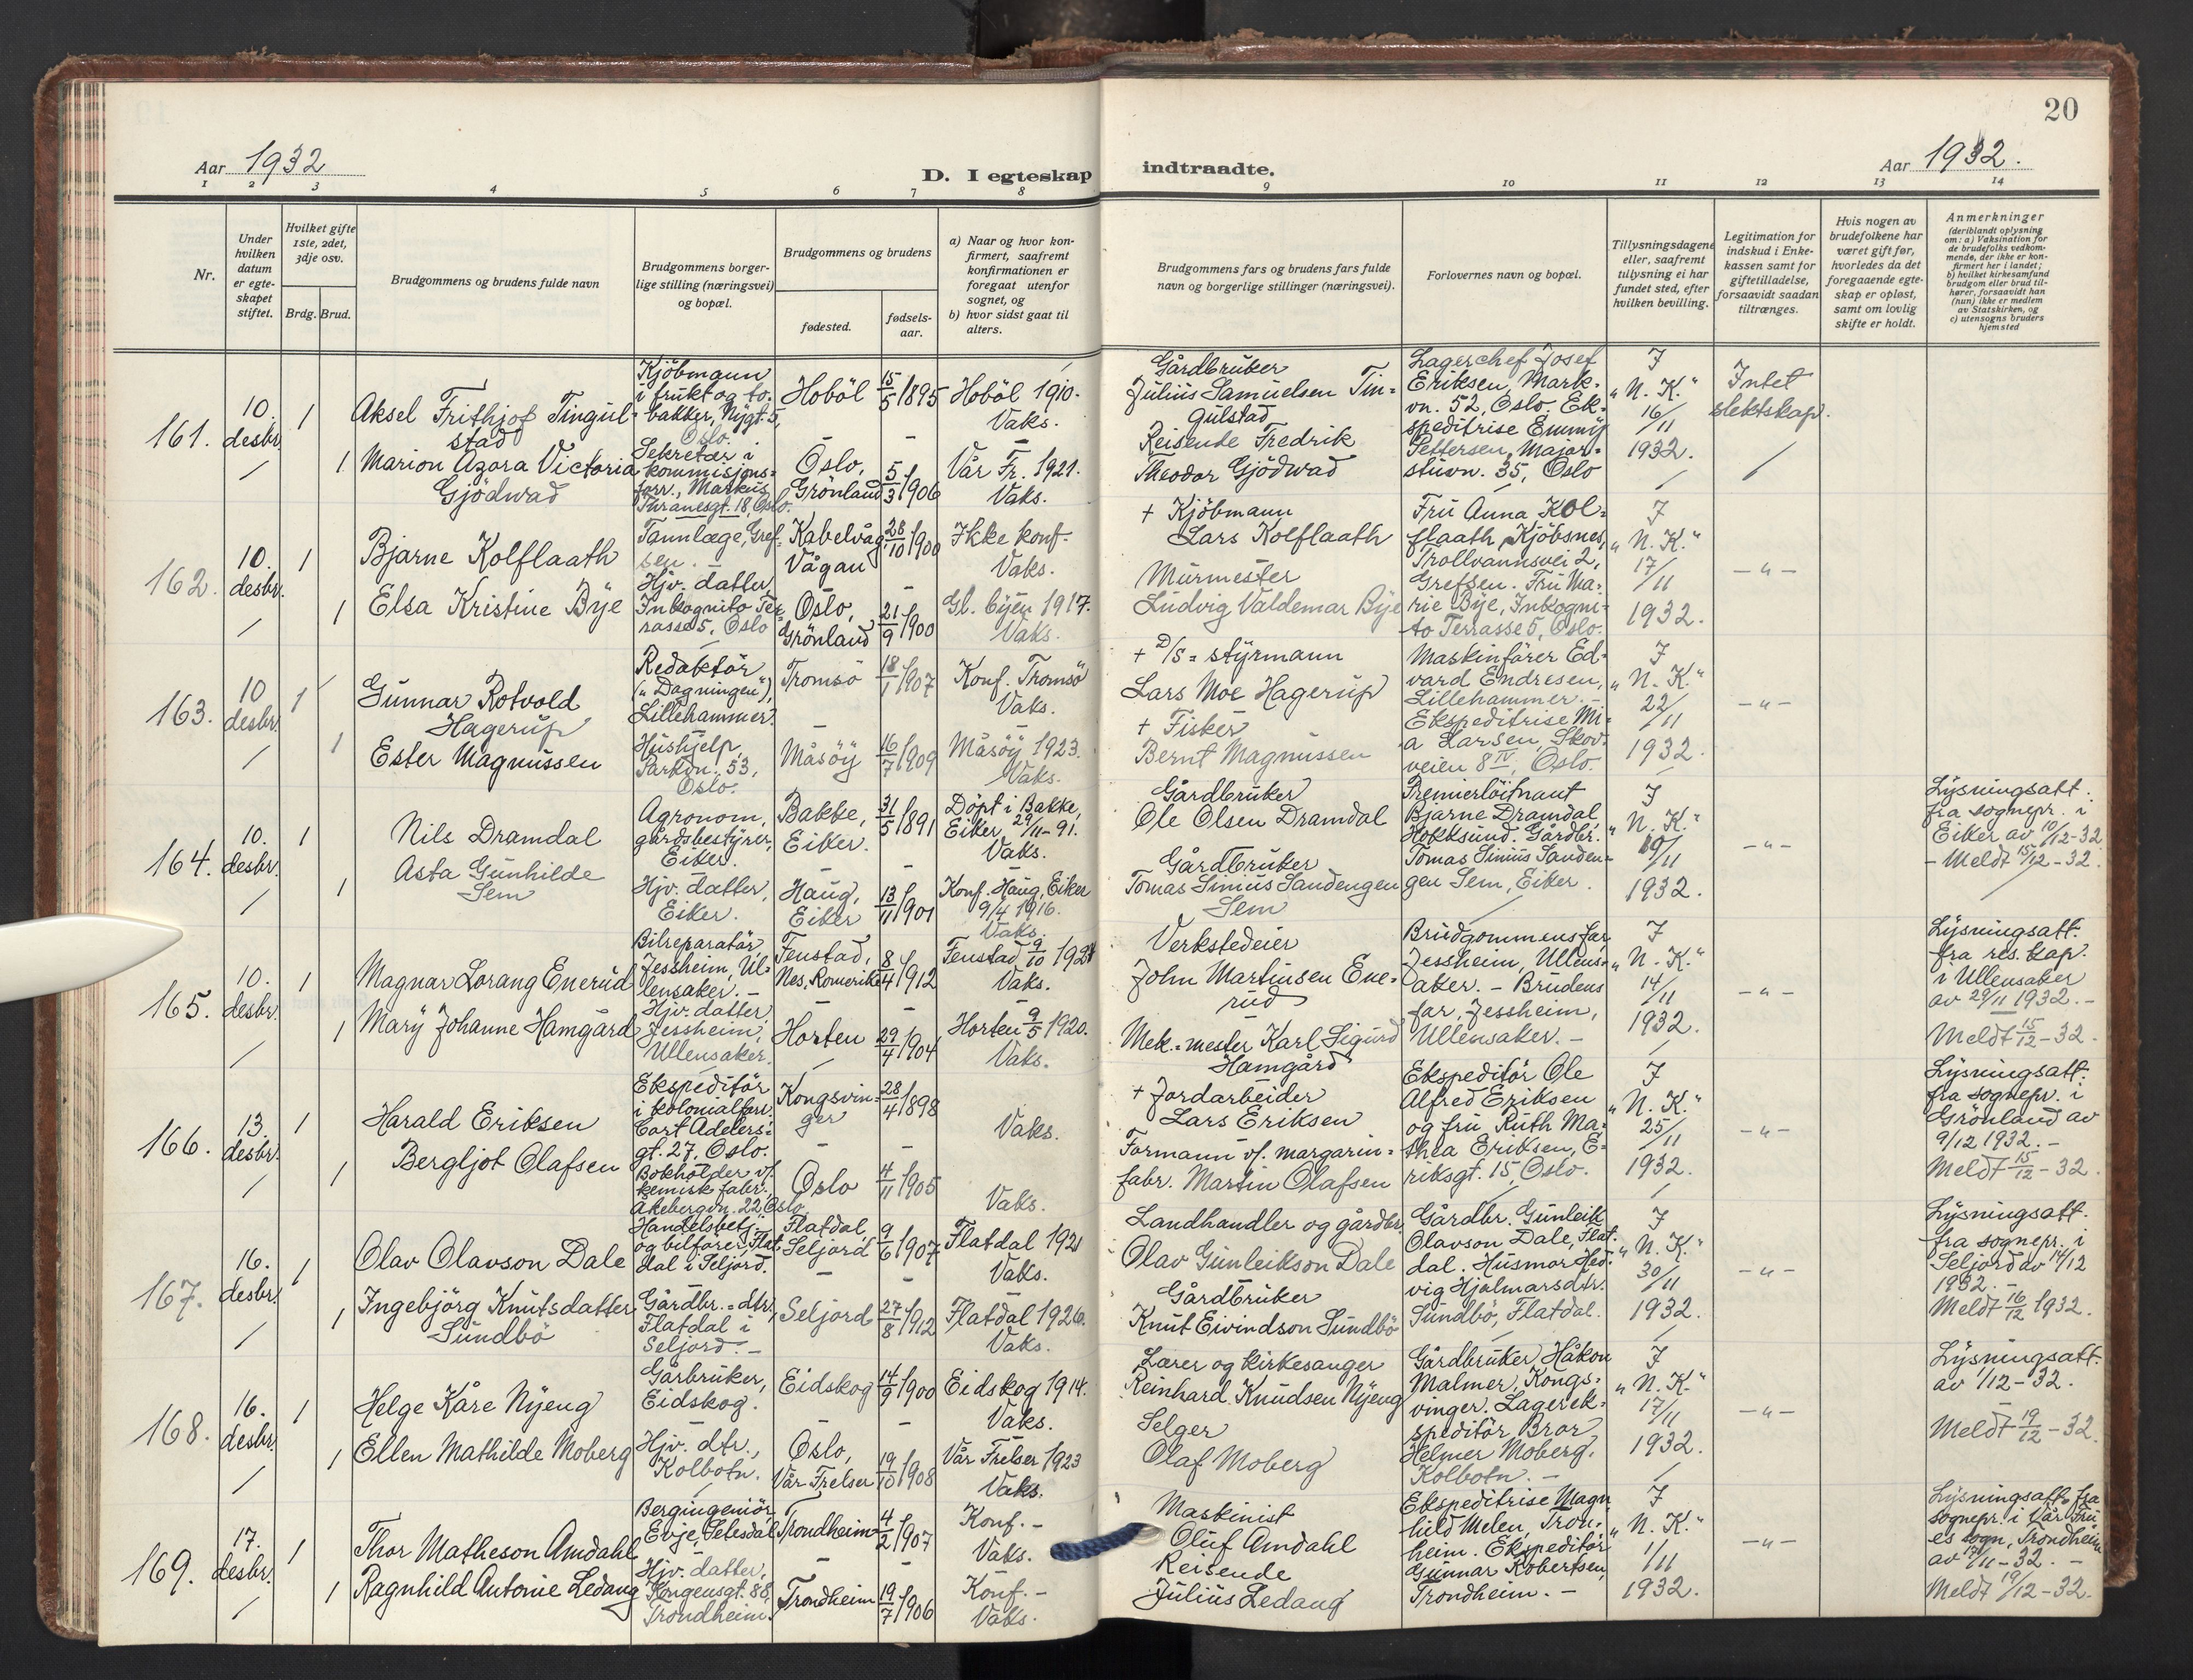 20
Aar 1932
D. I egteskap
indtraadte.
Aar 1932.
1 2 3 4 5 6 7 8 9 10 11 12 13 14
Nr.
Under hvilken datum er egte-skapet stiftet.
Hvilket gifte 1ste, 2det, 3dje osv.
Brdg. Brud.
Brudgommens og brudens fulde navn
Brudgommens borger-lige stilling (næringsvei) og bopæl.
Brudgommens og brudens
fødested.
fødsels-aar.
a) Naar og hvor kon-firmert, saafremt konfirmationen er foregaat utenfor sognet, og
b) hvor sidst gaat til alters.
Brudgommens fars og brudens fars fulde navn og borgerlige stillinger (næringsvei).
Forlovernes navn og bopæl.
Tillysningsdagene eller, saafremt tillysning ei har fundet sted, efter hvilken bevilling.
Legitimation for indskud i Enke-kassen samt for giftetilladelse, forsaavidt saadan tiltrænges.
Hvis nogen av brudefolkene har været gift før, hvorledes da det foregaaende egte-skap er opløst, samt om lovlig skifte er holdt.
Anmerkninger (deriblandt oplysning om: a) Vaksination for de brudefolks vedkom-mende, der ikke er kon-firmert her i landet; b) hvilket kirkesamfund brudgom eller brud til-hører, forsaavidt han (hun) ikke er medlem av Statskirken, og c) utensogns bruders hjemsted
161. 10. desbr. 1
Aksel Frithjof Tingul-stad
Kjöbmann i frukt og to-bakker, Nygt. 5, Oslo.
Hoböl 15/5 1895 Hoböl 1910. Vaks.
Gårdbruker Julius Samuelsen Tin-gulstad
Lagerchef Josef Eriksen, Mark-vn. 52, Oslo. Ek-speditrise Emmy Pettersen, Major-stuvn. 35, Oslo
I "N. K." 16/11 1932.
Intet slektskap.
1 Marion Azora Victoria Gjödwad
Sekretær i kommisjons-forr., Markus Thranesgt. 18, Oslo.
Oslo, Grönland 5/3 1906 Vår Fr. 1921. Vaks.
Reisende Fredrik Theodor Gjödwad
162. 10. desbr. 1
Bjarne Kolflaath
Tannlæge, Gref-sen.
Kabelvåg Vågan 28/10 1900 Ikke konf. Vaks.
+ Kjöbmann Lars Kolflaath
Fru Anna Kol-flaath, Kjöbsnes, Trollvannsvei 2, Grefsen. Fru Ma-rie Bye, Inkogni-to Terrasse 5, Oslo.
I "N. K." 17/11 1932.
- " -
1 Elsa Kristine Bye
Hjv. datter, Inkognito Ter-rasse 5, Oslo
Oslo, Grönland 21/9 1900 Gl. byen 1917. Vaks.
Murmester Ludvig Valdemar Bye
163. 10 desbr. 1
Gunnar Rotvold Hagerup
Redaktör ("Dagningen"), Lillehammer.
Tromsö 18/1 1907 Konf. Tromsö Vaks.
+ D/S = styrmann Lars Moe Hagerup
Maskinförer Ed-vard Endresen, Lillehammer. Ekspeditrise Mi-a Larsen, Skov-veien 8 IV, Oslo.
I "N. K." 22/11 1932.
- " -
1 Ester Magnussen
Hushjelp, Parkvn. 53, Oslo.
Måsöy 16/7 1909 Måsöy 1923. Vaks.
+ Fisker Bernt Magnussen
164. 10. desbr. 1
Nils Dramdal
Agronom, gårdsbestyrer, Eiker.
Bakke, Eiker. 31/5 1891 Döpt i Bakke, Eiker 29/11-91. Vaks.
Gårdbruker Ole Olsen Dramdal
Premierlöitnant Bjarne Dramdal, Hokksund. Gårdbr. Tomas Simius Sanden-gen Sem, Eiker.
I "N. K." 19/11 1932.
- " -
Lysningsatt. fra sognepr. i Eiker av 10/12-32. - Meldt 15/12-32.
1 Asta Gunhilde Sem
Hjv. datter, Eiker.
Haug, Eiker 13/11 1901 Konf. Haug, Eiker 9/4 1916. Vaks.
Gårdbruker Tomas Simius Sandengen Sem
165. 10. desbr. 1
Magnar Lorang Enerud
Bilreparatör Jessheim, Ul-lensaker. -
Fenstad, Nes, Romerike 8/4 1912 Fenstad 9/10 192 Vaks.
Verkstedeier John Martinsen Ene-rud
Brudgommens far Jessheim, Ullens-aker. - Brudens far, Jessheim, Ullensaker. -
I "N. K." 14/11 1932.
- " -
Lysningsatt. fra res. kap. i Ullensaker av 29/11 1932. - Meldt 15/12-32.
1 Mary Johanne Hamgård
Hjv. datter, Jessheim, Ullensaker.
Horten 29/4 1904 Horten 9/5 1920. Vaks.
Mek.=mester Karl Sigurd Hamgård
166. 13. desbr. 1
Harald Eriksen
Ekspeditör i kolonialforr. Cort Adelers-gt. 27, Oslo.
Kongsvin-ger 28/4 1898 Vaks.
+ Jordarbeider Lars Eriksen
Ekspeditör Ole Alfred Eriksen og fru Ruth Ma-thea Eriksen, E-riksgt. 15, Oslo.
I "N. K." 25/11 1932.
- " -
Lysningsatt. fra sognepr. i Grönland av 9/12 1932. - Meldt 15/12-32.
1 Bergljot Olafsen
Bokholder v/ kemisk fabr., Åkebergvn. 22, Oslo.
Oslo 4/11 1905 Vaks.
Formann v/ margarin-fabr. Martin Olafsen
167. 16. desbr. 1
Olav Olavson Dale
Handelsbetj. og bilförer, Flat-dal i Seljord.
Flatdal, Seljord 9/6 1907 Flatdal 1921 Vaks.
Landhandler og gårdbr. Olav Gunleikson Dale
Gårdbr. Gunleik Olavson Dale, Flat-dal. Husmor Hed-vig Hjalmarsdtr. Sundbö, Flatdal.
I "N. K." 30/11 1932.
- " -
Lysningsatt. fra sognepr. i Seljord av 14/12 1932. - Meldt 16/12 1932.
1 Ingebjörg Knutsdatter Sundbö
Gårdbr.=dtr., Flatdal i Seljord. -
Seljord 27/8 1912 Flatdal 1926. Vaks.
Gårdbruker Knut Eivindson Sundbö
168. 16. desbr. 1
Helge Kåre Nyeng
Gårbruker, Eidskog.
Eidskog 14/9 1900 Eidskog 1914. Vaks.
Lærer og kirkesanger Reinhard Knudsen Nyeng
Gårdbruker Håkon Malmer, Kongs-vinger. Lagerek-speditör Bror Helmer Moberg, Kolbotn. -
I "N. K." 17/11 1932.
- " -
Lysningsatt. av 1/12-32. - Meldt 19/12-32.
1 Ellen Mathilde Moberg
Hjv. dtr., Kolbotn.
Oslo, Vår Frelser 19/10 1908 Vår Frelser 1923 Vaks.
Selger Olaf Moberg
169. 17. desbr. 1
Thor Matheson Amdahl
Bergingeniör, Evje, Setesdal
Trondheim 4/2 1907 Konf. - Vaks.
Maskinist Oluf Amdahl
Ekspeditrise Magn-hild Melen, Tron-heim. Ekspeditör Gunnar Robertsen, Trondheim. -
I "N. K." 1/11 1932.
- " -
Lysningsatt. fra sognepr. i Vår Fru-es sogn, Trondheim av /11-32. - Meldt 19/12-32.
1 Ragnhild Antonie Ledang
Hjv. datter, Kongensgt. 88, Trondheim.
Trondheim 19/7 1906 Konf. - Vaks.
Reisende Julius Ledang